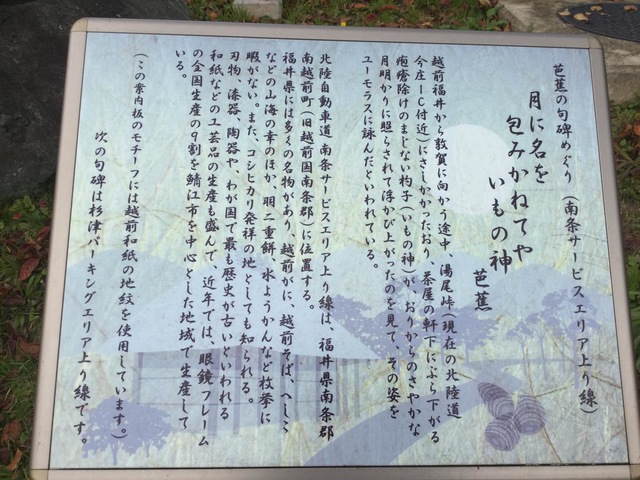 芭蕉の句碑めぐり（南条サービスエリア上り線）
月に名を
包みかねてや
いもの神
芭蕉
越前福井から敦賀に向かう途中、湯尾峠（現在の北陸道
今庄ＩＣ付近）にさしかかったおり、茶屋の軒下にぶら下がる
疱瘡除けのまじない杓子（いもの神）が、おりからのさやかな
月明かりに照らされて浮かび上がったのを見て、その姿を
ユーモラスに詠んだといわれている。
北陸自動車道 南条サービスエリア上り線は、福井県南条郡
南越前町（旧越前国南条郡）に位置する。
福井県には多くの名物があり、越前がに、越前そば、へしこ
などの山海の幸のほか、羽二重餅、水ようかんなど枚挙に
暇がない。また、コシヒカリ発祥の地としても知られる。
刃物、漆器、陶器や、わが国で最も歴史が古いといわれる
和紙などの工芸品の生産も盛んで、近年では、眼鏡フレーム
の全国生産の９割を鯖江市を中心とした地域で生産して
いる。
（この案内板のモチーフには越前和紙の地紋を使用しています。）
次の句碑は杉津パーキングエリア上り線です。